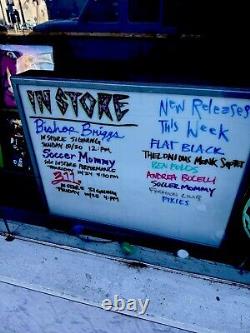 IN STORE
Bishop Briggs
IN STORE SIGNING
SUNDAY 10/20 12 PM
Soccer Mommy
IN STORE PERFORMANCE
311
IN STORE SIGNING
FRIDAY 4 PM
New Releases
This Week
FLAT BLACK
THELONIOUS MONK SEPTET
BEN FOLDS
ANDREA BOCELLI
SOCCER MOMMY
PIXIES